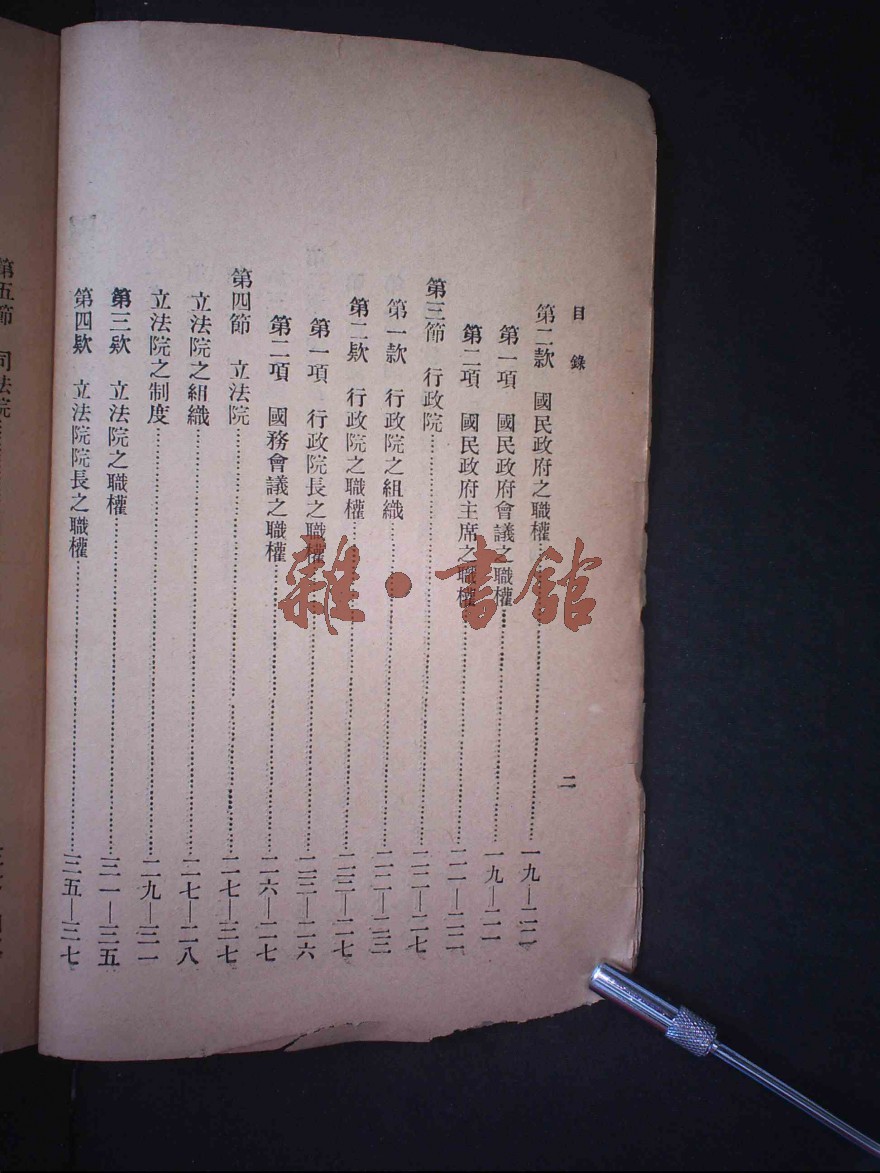 目錄
二
第二款 國民政府之職權……一九—二二
第一項 國民政府會議之職權……一九—二一
第二項 國民政府主席之職權……二一—二二
第三節 行政院……二二—二七
第一款 行政院之組織……二二—二三
第二欵 行政院之職權……二三—二七
第一項 行政院長之職權……二三—二六
第二項 國務會議之職權……二六—二七
第四節 立法院……二七—三七
立法院之組織……二七—二八
立法院之制度……二九—三一
第三欵 立法院之職權……三一—三五
第四欵 立法院院長之職權……三五—三七
第五節 司法院……
雜·書館